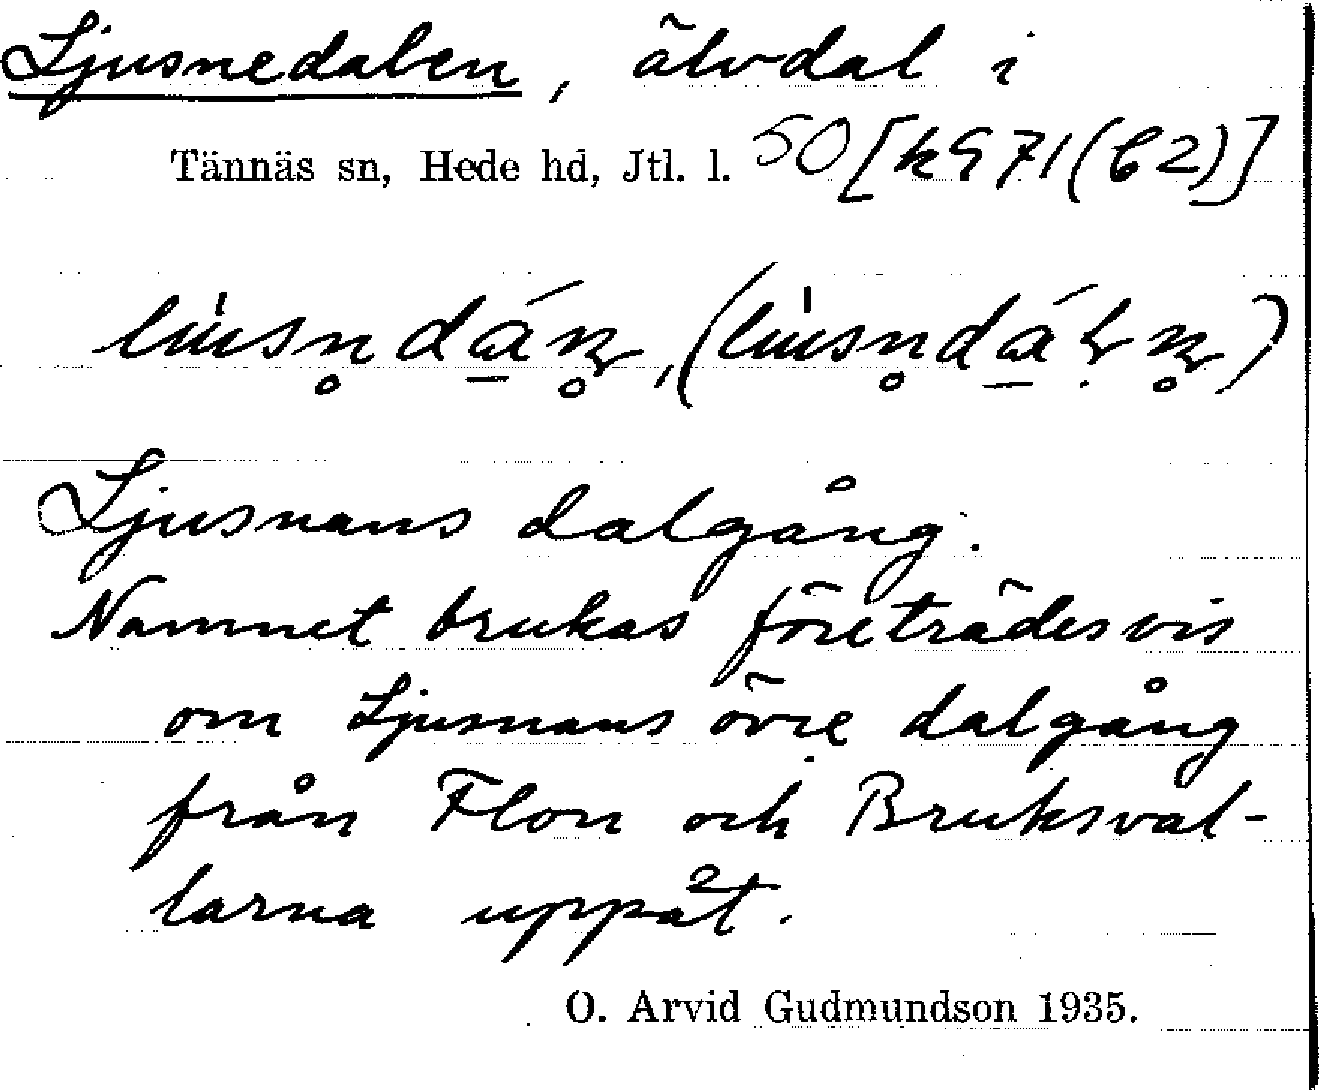 Ljusnedalen, älvdal i
Tännäs sn, Hede hd, Jtl. l. 50 [k 971 (C2)]
Ljusnans dalgång.
Namnet brukas företrädesvis
om Ljusnans övre dalgång
från Flon och Bruksval-
larna uppåt.
O. Arvid Gudmundson 1935.